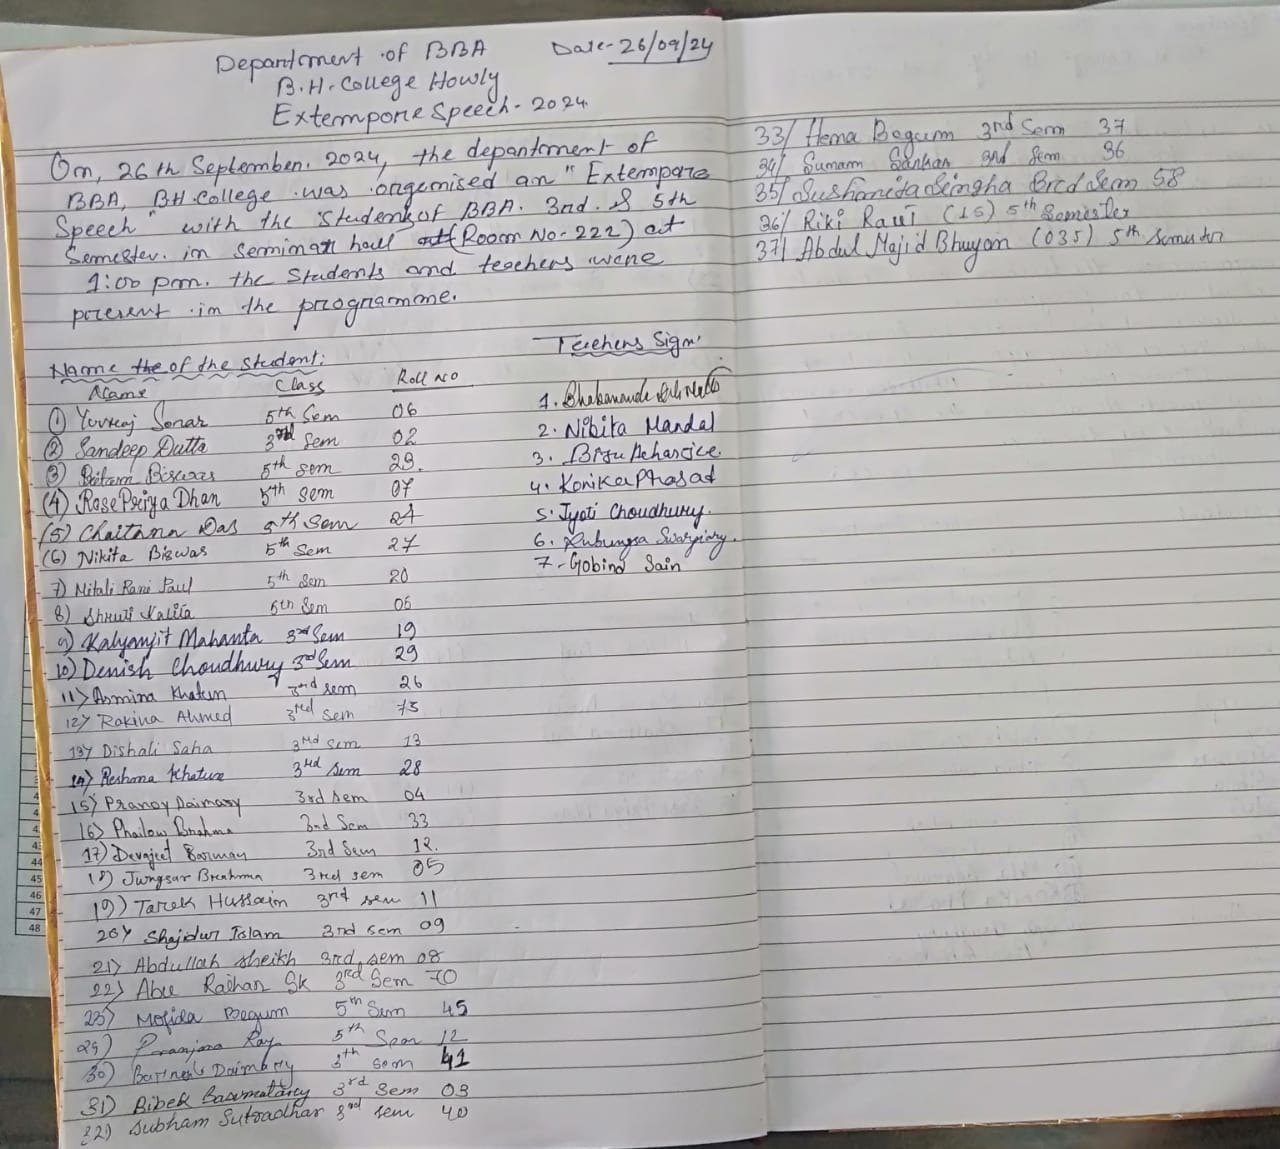 Department of BBA Date- 26/09/24
B.H. College Howly
Extempore Speech- 2024
On, 26th September. 2024, the department of
BBA, BH. College was organised an "Extempore
Speech" with the students of BBA. 3rd. & 5th
Semester. in Seminar hall (Room No- 222) at
1:00 pm. the Students and teachers were
present in the programme.
Name the of the Student:
Name Class Roll No
(1) Yuvraj Sonar 5th Sem 06
(2) Sandeep Dutta 3rd Sem 02
(3) Pritam Biswas 5th sem 29.
(4) Rose Priya Dhan 5th sem 07
(5) Das 5th Sem
(6) Nikita Biswas 5th Sem 27
7) Mitali Rani Paul 5th Sem 20
8) Shruti Kalita 5th Sem 05
9) Kalyanjit Mahanta 3rd Sem 19
10) Denish Choudhury 3rd Sem 29
11) Asmina Khatun 3rd sem 26
12) Rakiva Ahmed 3rd Sem 73
13) Dishali Saha 3rd sem 13
14) Reshma Khatun 3rd sem 28
15) Pranoy Daimary 3rd sem 04
16) Phailow Brahma 3rd Sem 33
17) Devajeet Barman 3rd Sem 12.
18) Jungsar Brahma 3rd sem 05
19) Tarek Hussain 3rd sem 11
20) Shajidur Islam 3rd sem 09
21) Abdullah sheikh 3rd sem 08
22) Abu Raihan Sk 3rd Sem 70
23) Mofida Begum 5th Sem 45
29) Pranjana Ray 5th Sem 12
30) Daimary 5th sem 41
31) Bibek Basumatary 3rd Sem 03
32) Subham Sutradhar 3rd sem 40
Teachers Sign.
1.
2. Nibita Mandal
3. Biju Acharjee
4. Konika Prasad
5. Jyoti Choudhury.
6. Rubungsa Swargiary.
7- Gobind Sain
33/ Hema Begum 3rd Sem 37
34/ Sumam Sarkar 3rd Sem 36
35/ Sushmita Singha 3rd Sem 58
36/ Riki Raut (15) 5th Semester
37/ Abdul Majid Bhuyan (035) 5th semester
43
44
45
46
47
48